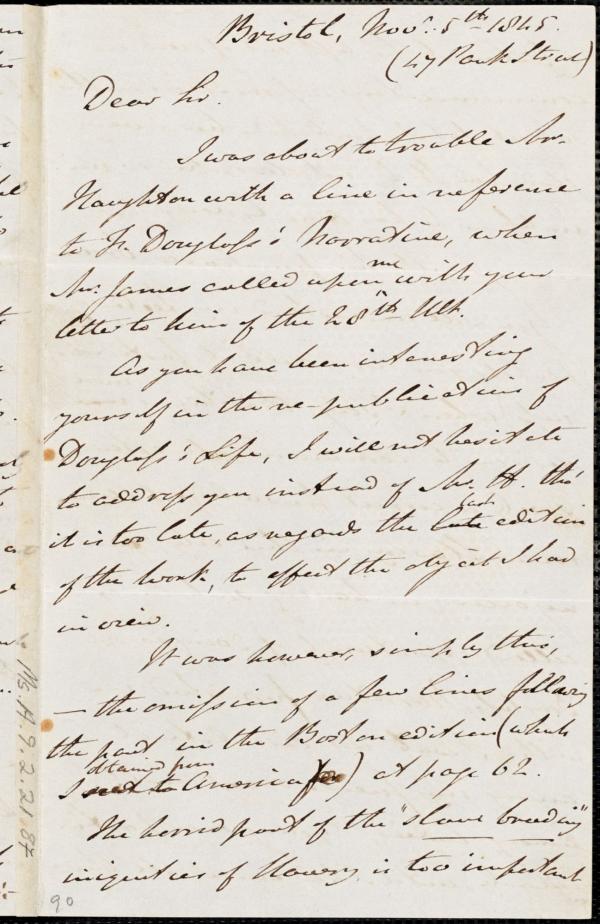 Bristol, Novr. 5th 1845.
(47 Park Street)
Dear Sir.
I was about to trouble Mr.
Haughton with a line in reference
to F. Douglass's Narrative, when
Mr. James called upon me with your
letter to him of the 28th Ult.
As you have been interesting
yourself in the re-publication of
Douglass's Life, I will not hesitate
to address you instead of Mr. H. tho'
it is too late, as regards the last edition
of the work, to effect the object I had
in view.
It was however, simply this,
— the omission of a few lines following
the part in the Boston edition (which
I obtained from America) at page 62.
The horrid part of the "slave breeding"
iniquities of slavery is too important
Ms.A.9.2.21.87
90